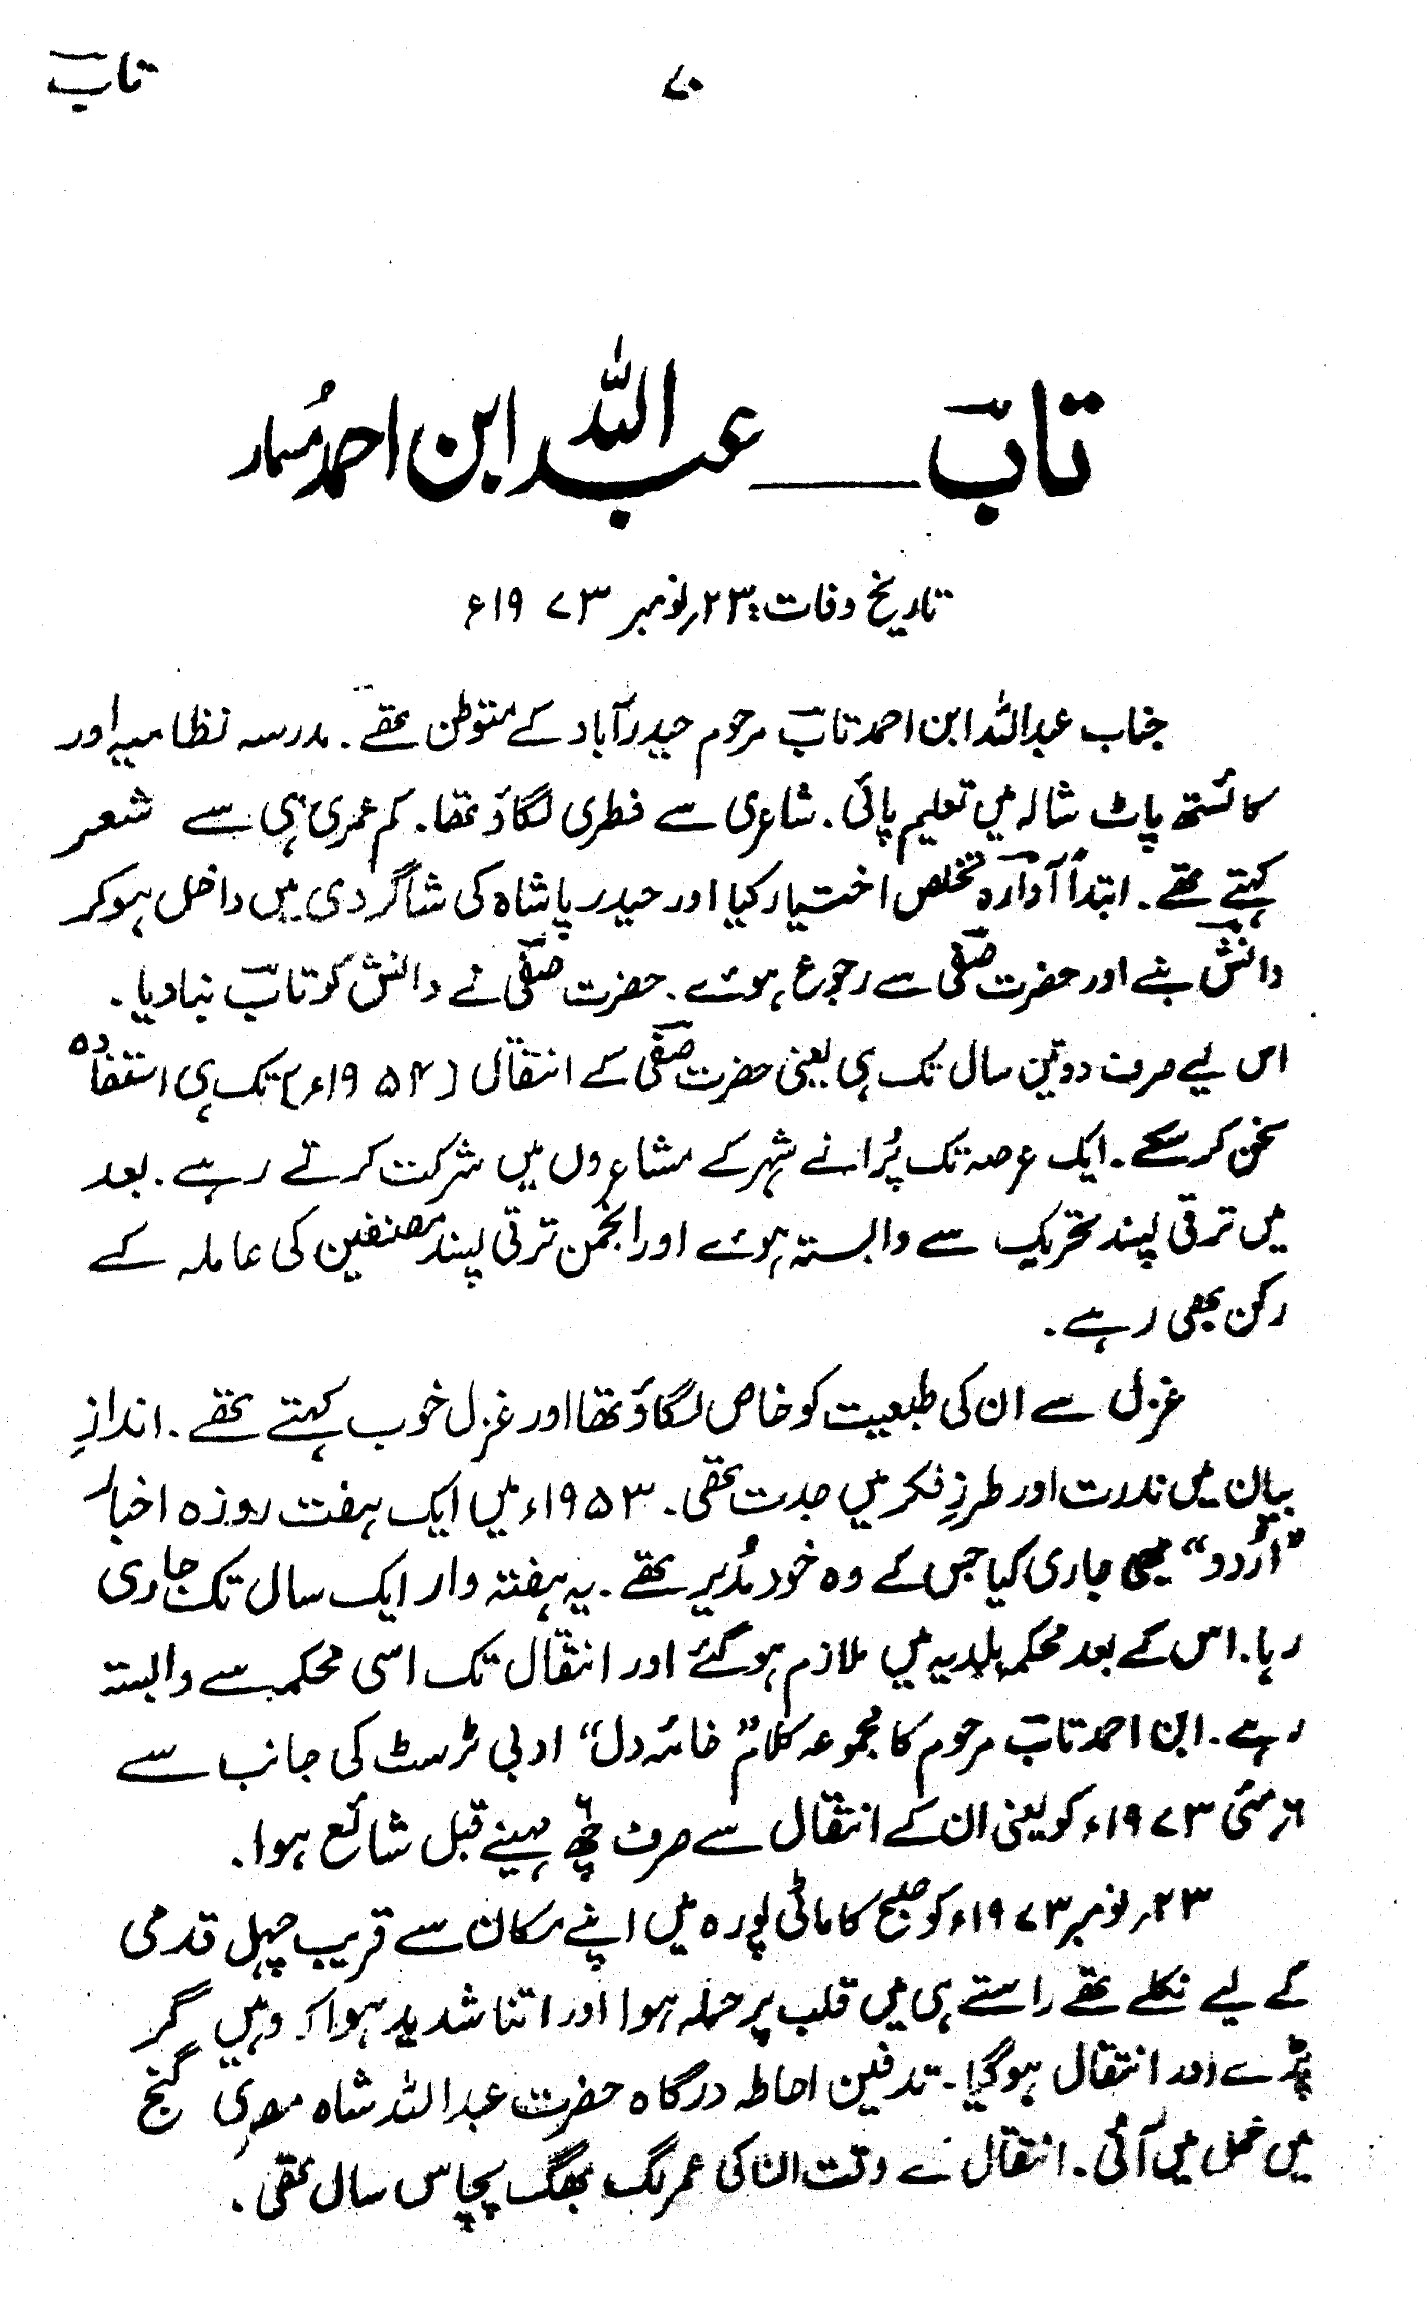 تاب
۷۰
تاب ـــــ عبداللہ ابن احمد مسمار
تاریخ وفات: ۲۳؍نومبر ۱۹۷۳ء
جناب عبداللہ ابن احمد تاب مرحوم حیدرآباد کے متوطن تھے۔ مدرسہ نظامیہ اور
کائستھ پاٹ شالہ میں تعلیم پائی۔ شاعری سے فطری لگاؤ تھا۔ کم عمری ہی سے شعر
کہتے تھے۔ ابتداً آوارہ تخلص اختیار کیا اور حیدر پاشاہ کی شاگردی میں داخل ہوکر
دانش بنے اور حضرت صفی سے رجوع ہوے۔ حضرت صفی نے دانش کو تاب بنادیا۔
اس لیے صرف دو تین سال تک ہی یعنی حضرت صفی کے انتقال [۱۹۵۴ء] تک ہی استفادہ
سخن کرسکے۔ ایک عرصہ تک پُرانے شہر کے مشاعروں میں شرکت کرتے رہے۔ بعد
میں ترقی پسند تحریک سے وابستہ ہوے اور انجمن ترقی پسند مصنفین کی عاملہ کے
رکن بھی رہے۔
غزل سے ان کی طبعیت کو خاص لگاؤ تھا اور غزل خوب کہتے تھے۔ اندازِ
بیان میں ندرت اور طرزِ فکر میں جدت تھی۔ ۱۹۵۳ء میں ایک ہفت روزہ اخبار
”اُردو“ بھی جاری کیا جس کے وہ خود مُدیر تھے۔ یہ ہفتہ وار ایک سال تک جاری
رہا۔ اس کے بعد محکمہ بلدیہ میں ملازم ہوگئے اور انتقال تک اسی محکمہ سے وابستہ
رہے۔ ابن احمد تاب مرحوم کا مجموعہ کلام ”خانۂ دل“ ادبی ٹرسٹ کی جانب سے
۶؍مئی ۱۹۷۳ء کو یعنی ان کے انتقال سے صرف چھ ۶ مہینے قبل شائع ہوا۔
۲۳؍نومبر ۱۹۷۳ء کو صبح کاماٹی پورہ میں اپنے مکان سے قریب چہل قدمی
کے لیے نکلے تھے راستے ہی میں قلب پر حملہ ہوا اور اتنا شدید ہوا کہ وہیں گر
پڑے اور انتقال ہوگیا۔ تدفین احاطہ درگاہ حضرت عبداللہ شاہ مصری گنج
میں عمل میں آئی۔ انتقال کے وقت ان کی عمر لگ بھگ پچاس سال تھی۔